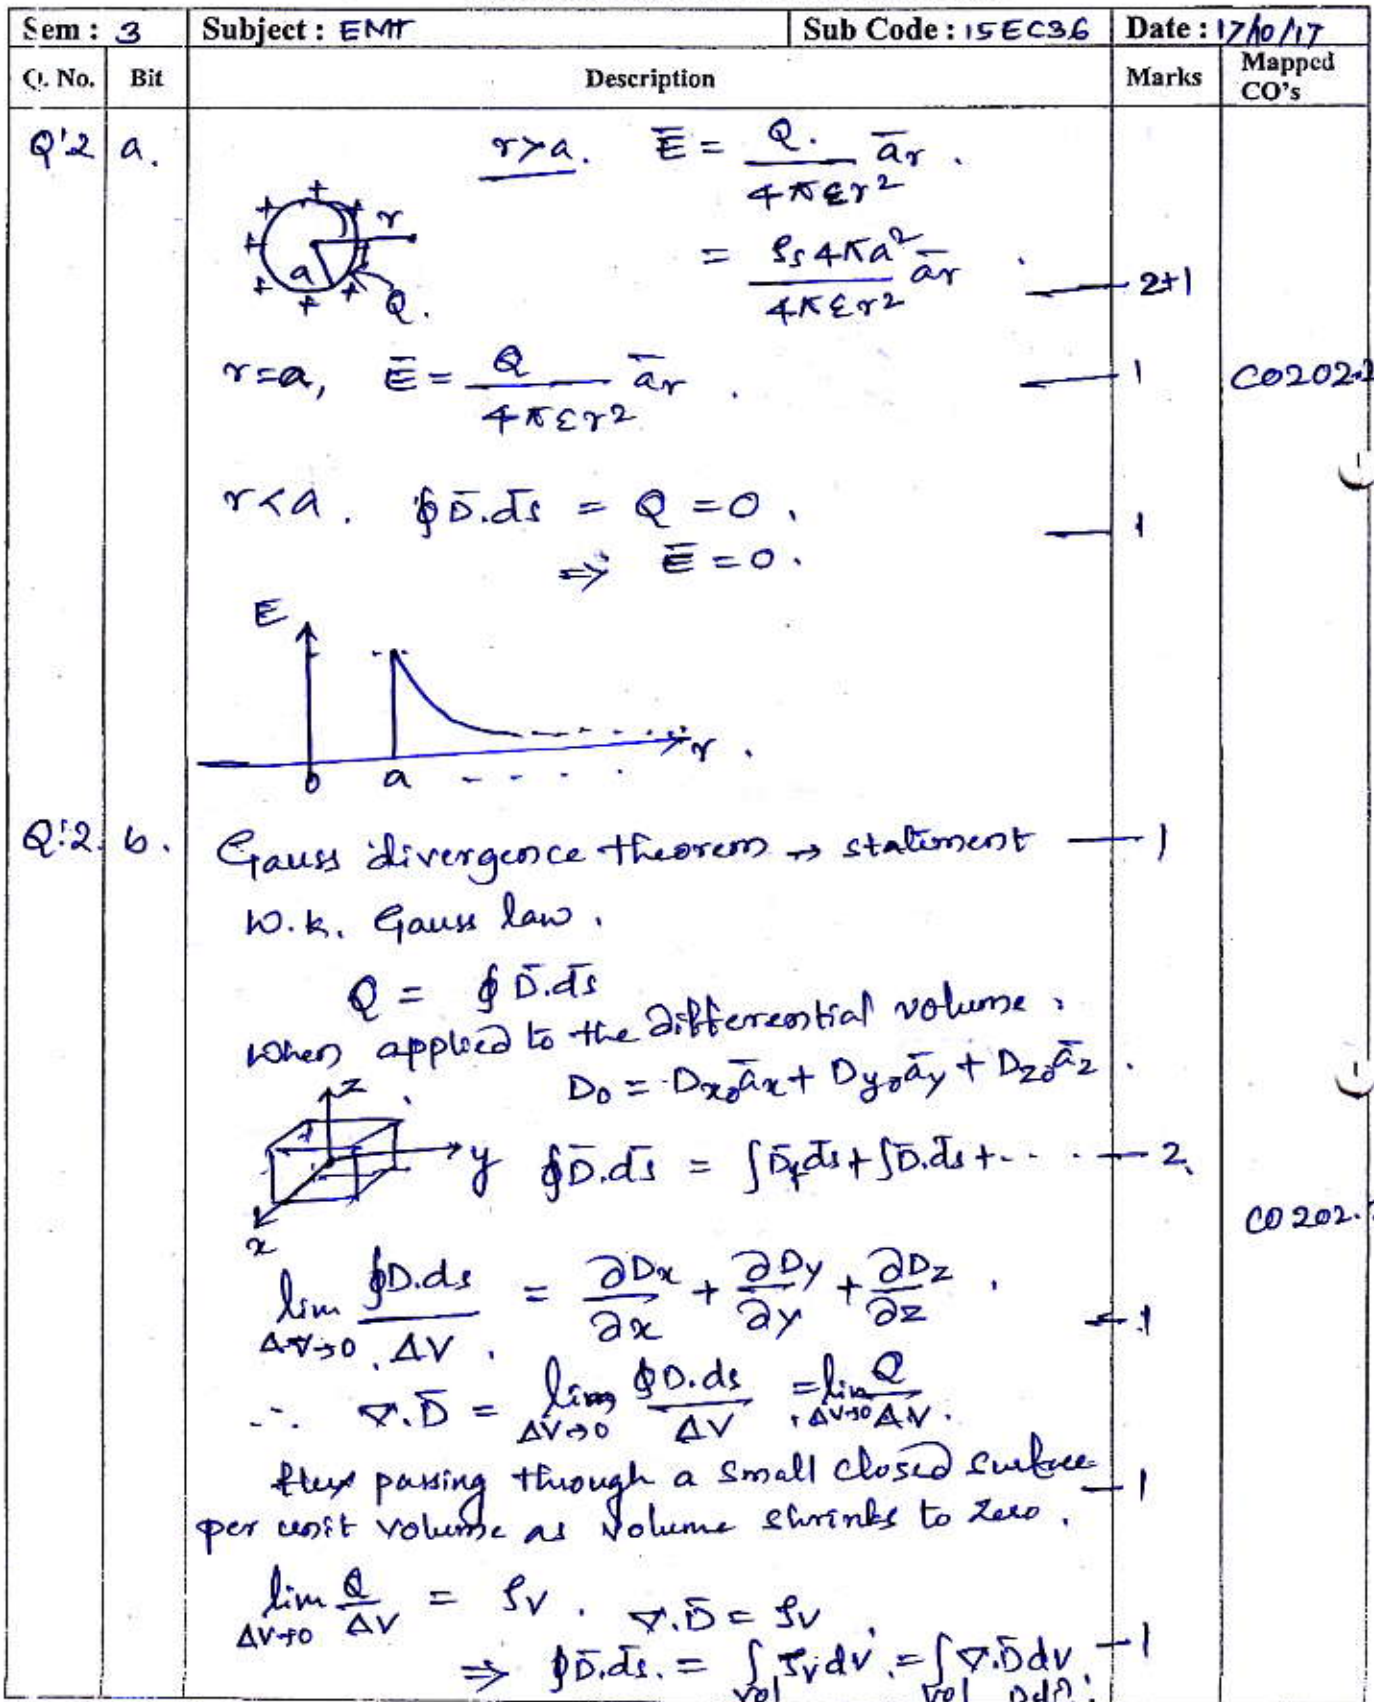 Sem : 3 Subject : EMT Sub Code : 15EC36 Date : 17/10/17
Q. No. Bit Description Marks Mapped CO's
Q'2 a. r>a. E̅ = Q. / 4πεr² a̅r .
+ + + + + + + + r a Q.
= ρs 4πa² / 4πεr² a̅r — 2+1
r=a, E̅ = Q / 4πεr² a̅r . — 1 CO202.
r<a. ∮D̅.d̅s = Q = 0 , — 1
⇒ E̅ = 0 .
E
0 a r .
Q:2. b. Gauss divergence theorem → statiment — 1
W.k. Gauss law .
Q = ∮ D̅.d̅s
when applied to the differential volume ,
D₀ = Dx₀a̅x + Dy₀a̅y + Dz₀a̅z .
z
y ∮D̅.d̅s = ∫D̅.d̅s + ∫D̅.d̅s + - - . — 2
x
CO 202.
lim ΔV→0 ∮D.ds / ΔV = ∂Dx/∂x + ∂Dy/∂y + ∂Dz/∂z . — 1
∴ ∇.D̅ = lim ΔV→0 ∮D.ds / ΔV = lim ΔV→0 Q / ΔV .
flux passing through a small closed surface — 1
per unit volume as volume shrinks to zero .
lim ΔV→0 Q / ΔV = ρv . ∇.D̅ = ρv .
⇒ ∮D̅.d̅s. = ∫vol ρv dv . = ∫vol ∇.D̅ dv — 1